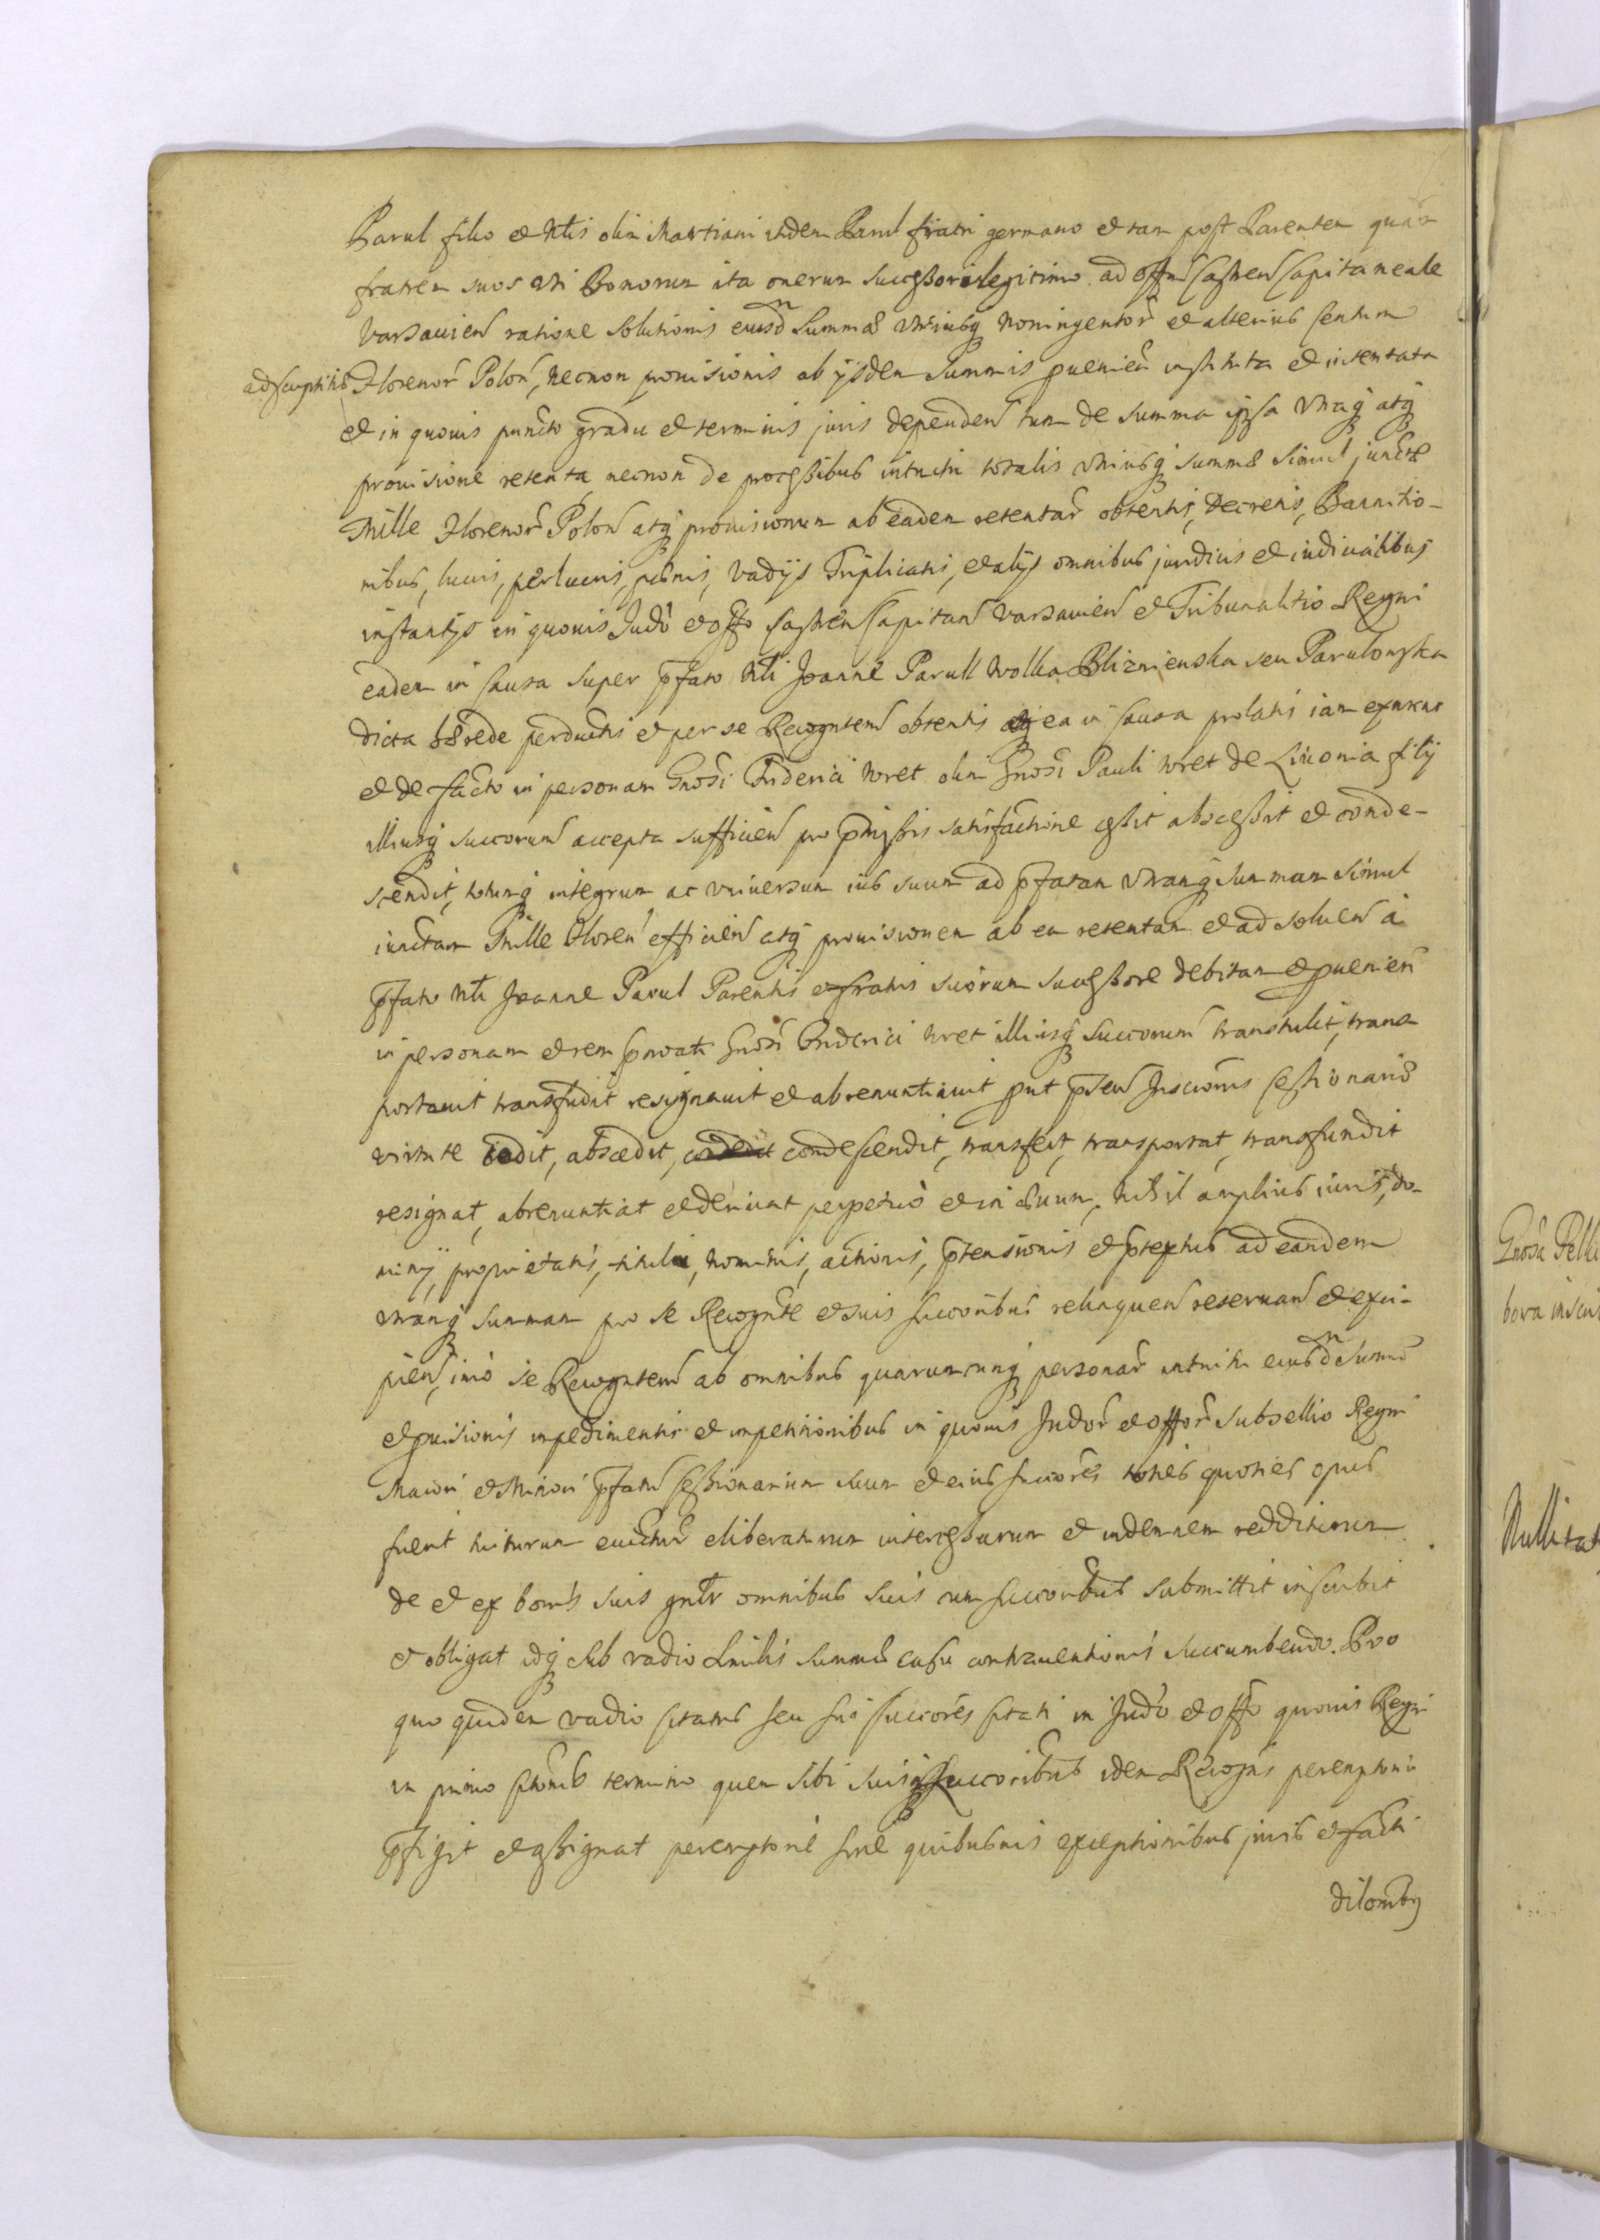 Parul filio et Nlis olim Martiani itidem Parul fratri germano et tam post Parentem quam
fratrem suos uti Bonorum ita onerum successori legitimo ad offm Castren Capitaneale
Varsavien ratione solutionis eiusdn Summæ utriusq noningentor et alterius centum
adscriptitis Florenor Polon, necnon provisionis ab ijsdem Summis pvenien instituta et intentata
et in quovis puncto gradu et terminis juris dependen tum de summa ipsa utraq atq
provisione retenta necnon de processibus intuitu totalis utriusq summæ simul junctæ
Mille Florenor Polon atq provisionum ab eadem retentar obtentis, Decretis, Bannitio-
nibus, lucris, perlucris, pænis, vadijs Triplicatis, et alijs omnibus juridicis et iudicialibus
instantijs in quovis Judo et offo Castren Capitan Varsavien et Tribunalitio Regni
eadem in causa super pfato Nli Joanne Parull Wolka Blizniewska seu Parulowska
dicta hærede perductis et per se Recognten obtentis atq ea in causa prolatis iam ex nunc
et de facto in personam Gnosi Friderici Wret olim Gnosi Pauli Wret de Livonia filij
illiusq succorum accepta sufficien pro pmissis satisfactione cessit abscessit et conde-
scendit, totumq integrum ac universum ius suum ad pfatam utramq summam simul
iunctam Mille Floren efficien atq provisionem ab ea retentam et ad solven a
pfato Nli Joanne Parul Parentis et fratris suorum successore debitam et pvenien
in personam et rem pnoati Gnosi Friderici Wret illiusq succorum transtulit, trans
portavit transfudit resignavit et abrenuntiavit put psen Inscrionis cessionariæ
virtute cedit, abscedit, condescendit, transfert, transportat, transfundit
resignat, abrenuntiat et derivat perpetuo et in ævum, Nihil amplius iuris, do-
minij, proprietatis, tituli, nominis, actionis, ptensionis et ptextus ad eandem
utramq summam pro se Recognte et suis succoribus relinquen reservan et exci-
pien, imo se Recognten ab omnibus quarumcunq personar intuitu eiusdn Summæ
et pvisionis impedimentis et impetitionibus in quovis Judor et offor subsellio Regni
Maiori et Minori pfatu Cessionarium suum et eius succores toties quoties opus
fuerit tuiturum evictur eliberaturum intercessurum et indemnem redditurum
de et ex bonis suis gnlr omnibus suis cum succoribus submittit inscribit
et obligat idq sub vadio similis summæ casu contraventionis succumbendo. Pro
quo quidem vadio citatus seu sui succores citati in Judo et offo quovis Regni
in primo citonis termino quem sibi suisq succoribus idem Recogns peremptorie
pfigit et assignat peremptorie sine quibusvis exceptionibus juris et facti
dilonibq
Gnosa
bona
Nullitat